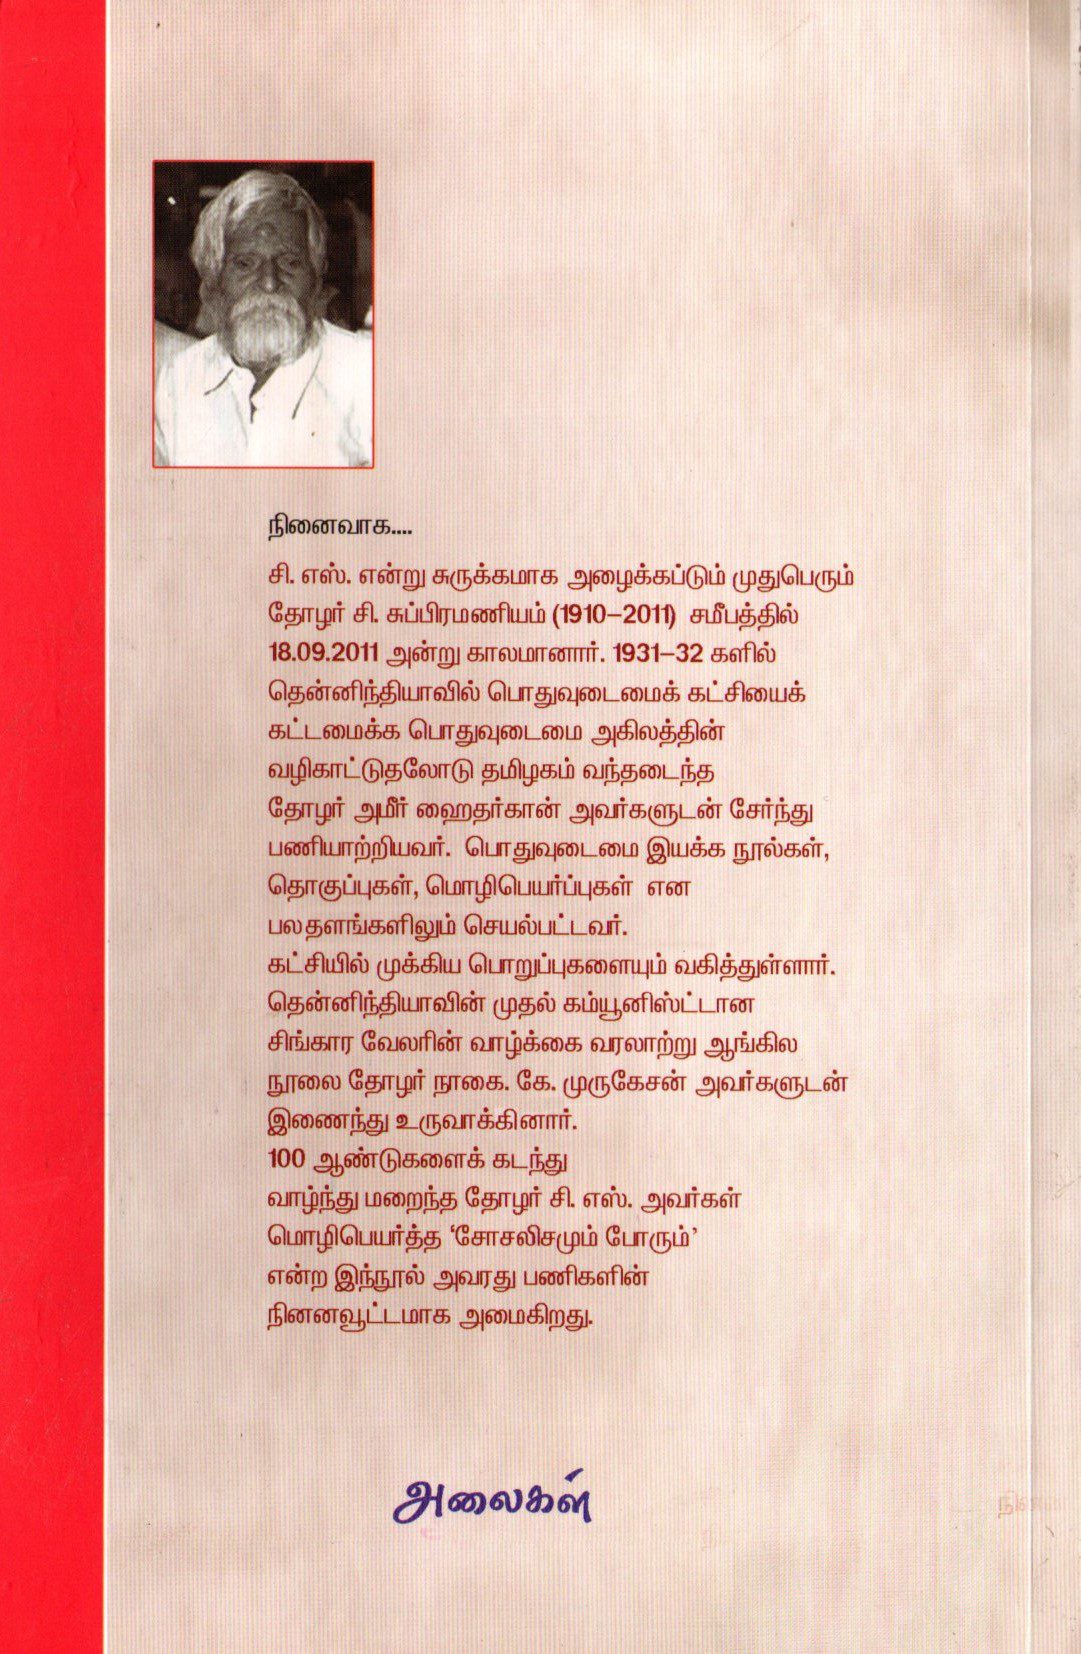 நினைவாக....
சி. எஸ். என்று சுருக்கமாக அழைக்கப்டும் முதுபெரும்
தோழர் சி. சுப்பிரமணியம் (1910–2011) சமீபத்தில்
18.09.2011 அன்று காலமானார். 1931–32 களில்
தென்னிந்தியாவில் பொதுவுடைமைக் கட்சியைக்
கட்டமைக்க பொதுவுடைமை அகிலத்தின்
வழிகாட்டுதலோடு தமிழகம் வந்தடைந்த
தோழர் அமீர் ஹைதர்கான் அவர்களுடன் சேர்ந்து
பணியாற்றியவர். பொதுவுடைமை இயக்க நூல்கள்,
தொகுப்புகள், மொழிபெயர்ப்புகள் என
பலதளங்களிலும் செயல்பட்டவர்.
கட்சியில் முக்கிய பொறுப்புகளையும் வகித்துள்ளார்.
தென்னிந்தியாவின் முதல் கம்யூனிஸ்ட்டான
சிங்கார வேலரின் வாழ்க்கை வரலாற்று ஆங்கில
நூலை தோழர் நாகை. கே. முருகேசன் அவர்களுடன்
இணைந்து உருவாக்கினார்.
100 ஆண்டுகளைக் கடந்து
வாழ்ந்து மறைந்த தோழர் சி. எஸ். அவர்கள்
மொழிபெயர்த்த ‘சோசலிசமும் போரும்’
என்ற இந்நூல் அவரது பணிகளின்
நினனவூட்டமாக அமைகிறது.
அலைகள்